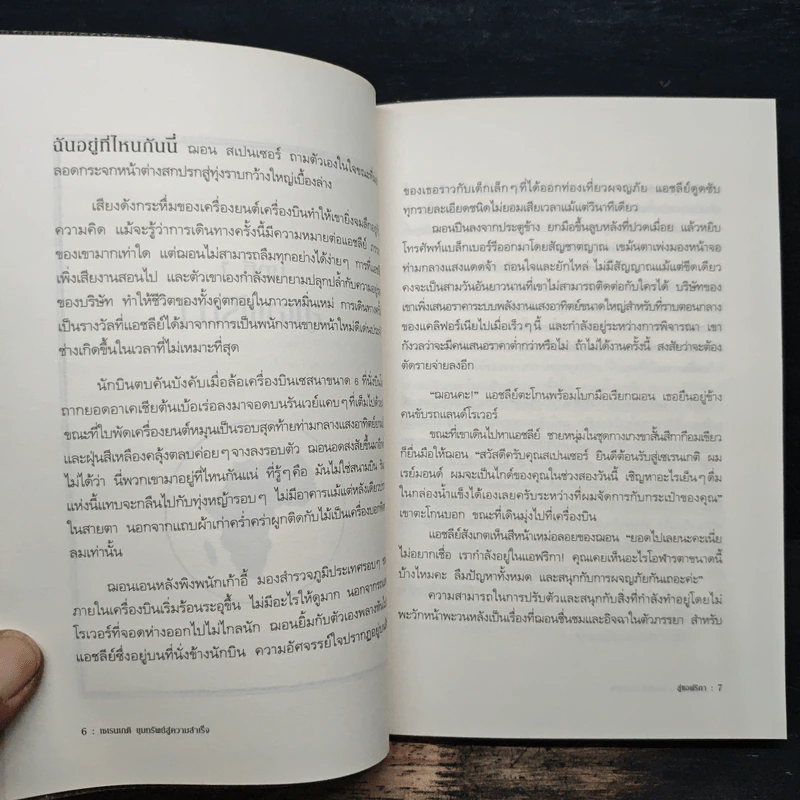 ฉันอยู่ที่ไหนกันนี่ ฌอน สเปนเซอร์ ถามตัวเองในใจขณะที่
ลอดกระจกหน้าต่างสกปรกสู่ทุ่งราบกว้างใหญ่เบื้องล่าง
เสียงดังกระหึ่มของเครื่องยนต์เครื่องบินทำให้เขายิ่งจมลึกอยู่
ความคิด แม้จะรู้ว่าการเดินทางครั้งนี้มีความหมายต่อแอชลีย์
ของเขามากเท่าใด แต่ฌอนไม่สามารถลืมทุกอย่างได้ง่ายๆ การที่
เพิ่งเสียงานสอนไป และตัวเขาเองกำลังพยายามปลุกปล้ำกับความอยู่
ของบริษัท ทำให้ชีวิตของทั้งคู่ตกอยู่ในภาวะหมิ่นเหม่ การเดินทาง
เป็นรางวัลที่แอชลีย์ได้มาจากการเป็นพนักงานขายหน้าใหม่ดีเด่น
ช่างเกิดขึ้นในเวลาที่ไม่เหมาะที่สุด
นักบินตบคันบังคับเมื่อล้อเครื่องบินเซสนาขนาด 6 ที่นั่ง
ถากยอดอาเคเซียต้นเบ้อเร่อลงมาจอดบนรันเวย์แคบๆ ที่เต็มไปด้วย
ขณะที่ใบพัดเครื่องยนต์หมุนเป็นรอบสุดท้ายท่ามกลางแสงอาทิตย์
และฝุ่นสีเหลืองคลุ้งตลบค่อยๆ จางลงรอบตัว ฌอนอดสงสัยขึ้นมาอีก
ไม่ได้ว่า นี่พวกเขามาอยู่ที่ไหนกันแน่ ที่รู้ๆ คือ มันไม่ใช่สนามบิน
แห่งนี้แทบจะกลืนไปกับทุ่งหญ้ารอบๆ ไม่มีอาคารแม้แต่หลังเดียว
ในสายตา นอกจากแถบผ้าเก่าคร่ำคร่าผูกติดกับไม้เป็นเครื่องบอก
ลมเท่านั้น
ฌอนเอนหลังพิงพนักเก้าอี้ มองสำรวจภูมิประเทศรอบๆ
ภายในเครื่องบินเริ่มร้อนระอุขึ้น ไม่มีอะไรให้ดูมาก นอกจาก
โรเวอร์ที่จอดห่างออกไปไม่ไกลนัก ฌอนยิ้มกับตัวเองพลาง
แอชลีย์ซึ่งอยู่บนที่นั่งข้างนักบิน ความอัศจรรย์ใจปรากฏอยู่
6 : เซเรนเกติ ขุมทรัพย์สู่ความสำเร็จ
ของเธอราวกับเด็กเล็กๆ ที่ได้ออกท่องเที่ยวผจญภัย แอชลีย์ดูดซับ
ทุกรายละเอียดชนิดไม่ยอมเสียเวลาแม้แต่วินาทีเดียว
ฌอนปีนลงจากประตูข้าง ยกมือขึ้นลูบหลังที่ปวดเมื่อย แล้วหยิบ
โทรศัพท์แบล็กเบอร์รีออกมาโดยสัญชาตญาณ เขม้นตาเพ่งมองหน้าจอ
ท่ามกลางแสงแดดจ้า ถอนใจและยักไหล่ ไม่มีสัญญาณแม้แต่ขีดเดียว
คงจะเป็นสามวันอันยาวนานที่เขาไม่สามารถติดต่อกับใครได้ บริษัทของ
เขาเพิ่งเสนอราคาระบบพลังงานแสงอาทิตย์ขนาดใหญ่สำหรับที่ราบตอนกลาง
ของแคลิฟอร์เนียไปเมื่อเร็วๆ นี้ และกำลังอยู่ระหว่างการพิจารณา เขา
กังวลว่าจะมีคนเสนอราคาต่ำกว่าหรือไม่ ถ้าไม่ได้งานครั้งนี้ สงสัยว่าจะต้อง
ตัดรายจ่ายลงอีก
“ฌอนคะ!” แอชลีย์ตะโกนพร้อมโบกมือเรียกฌอน เธอยืนอยู่ข้าง
คนขับรถแลนด์โรเวอร์
ขณะที่เขาเดินไปหาแอชลีย์ ชายหนุ่มในชุดกางเกงขาสั้นสีกากีอมเขียว
ก็ยื่นมือให้ “สวัสดีครับคุณสเปนเซอร์ ยินดีต้อนรับสู่เซเรนเกติ ผม
เรย์มอนด์ ผมจะเป็นไกด์ของคุณในช่วงสองวันนี้ เชิญหาอะไรเย็นๆ ดื่ม
ในกล่องน้ำแข็งได้เองเลยครับระหว่างที่ผมจัดการกับกระเป๋าของคุณ”
เขาตะโกนบอก ขณะที่เดินมุ่งไปที่เครื่องบิน
แอชลีย์สังเกตเห็นสีหน้าเหม่อลอยของฌอน “ยอดไปเลยนะคะเนี่ย
ไม่อยากเชื่อ เรากำลังอยู่ในแอฟริกา! คุณเคยเห็นอะไรโอฬารตาขนาดนี้
บ้างไหมคะ ลืมปัญหาทั้งหมด และสนุกกับการผจญภัยกันเถอะค่ะ”
ความสามารถในการปรับตัวและสนุกกับสิ่งที่กำลังทำอยู่โดยไม่
พะวักหน้าพะวนหลังเป็นเรื่องที่ฌอนชื่นชมและอิจฉาในตัวภรรยา สำหรับ
สู่แอฟริกา : 7